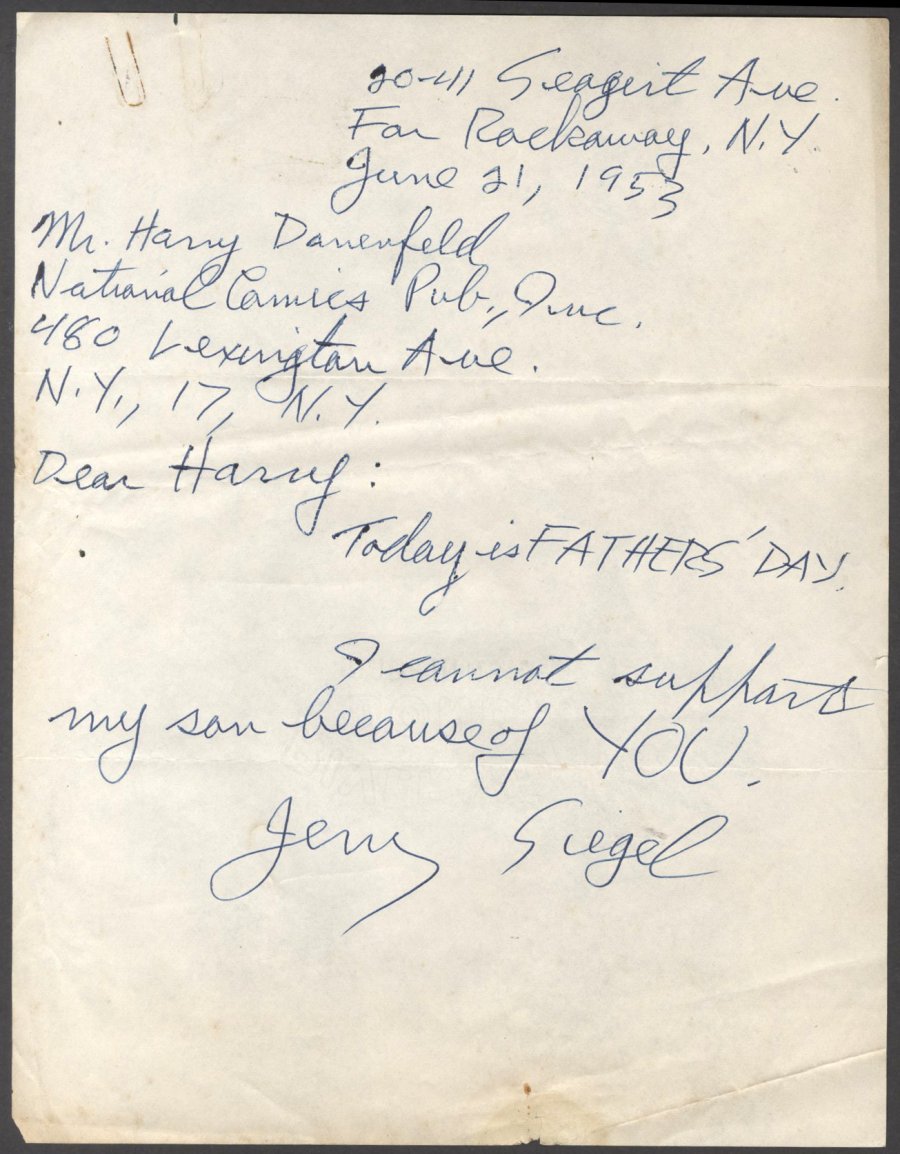 20-411 Seagirt Ave.
Far Rockaway, N.Y.
June 21, 1953
Mr. Harry Donenfeld
National Comics Pub., Inc.
480 Lexington Ave.
N.Y., 17, N.Y.
Dear Harry:
Today is FATHERS' DAY.
I cannot support
my son because of YOU.
Jerry Siegel